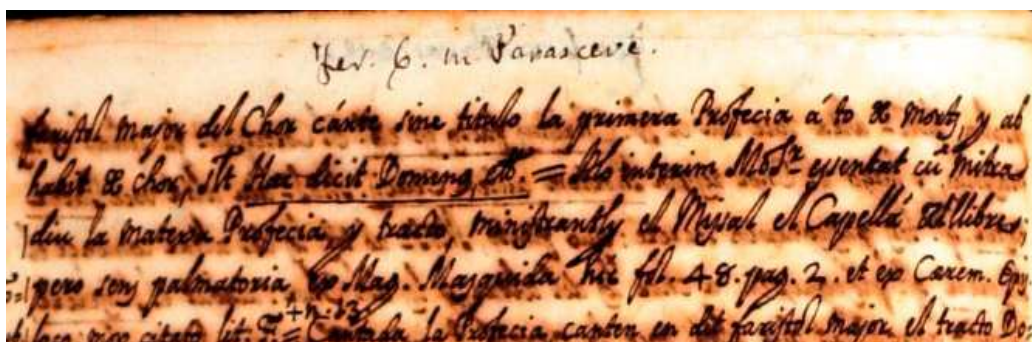 Fer. 6. in Parasceve.
faristol major del Chor cánte sine titulo la primera Profecia á to de morts, y ab
habit de chor, Hæc dicit = interim essentat cū mitra
diu la matexa Profecia, y tracto, ministrantly el Missal el Capellá del llibre,
pero sens palmatoria ex Mag. Masquida hic fol. 48. pag. 2. et ex Cærem. Epis
+n. 23
loco citato lit. = Cantada la Profecia canten en dit faristol major el tracto